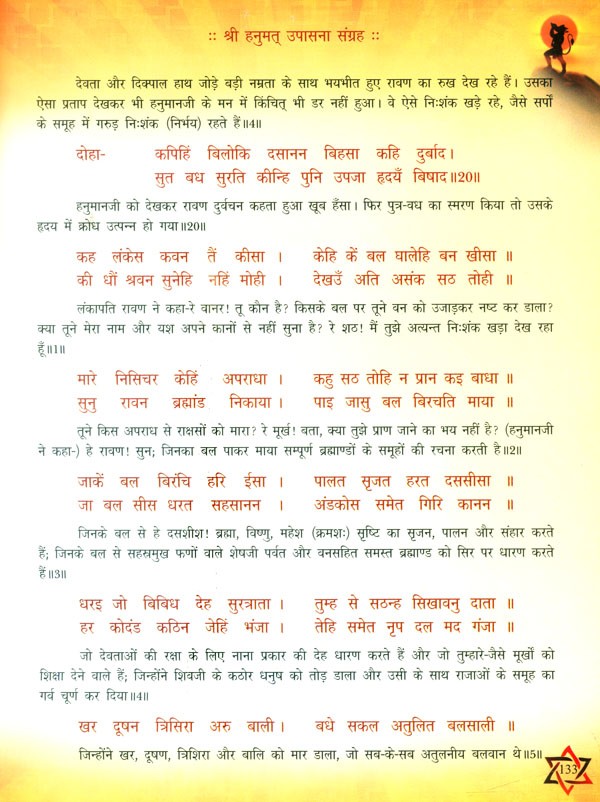 :: श्री हनुमत् उपासना संग्रह ::
देवता और दिक्पाल हाथ जोड़े बड़ी नम्रता के साथ भयभीत हुए रावण का रुख देख रहे हैं। उसका
ऐसा प्रताप देखकर भी हनुमानजी के मन में किंचित् भी डर नहीं हुआ। वे ऐसे निःशंक खड़े रहे, जैसे सर्पों
के समूह में गरुड़ निःशंक (निर्भय) रहते हैं॥4॥
दोहा- कपिहिं बिलोकि दसानन बिहसा कहि दुर्बाद।
सुत बध सुरति कीन्हि पुनि उपजा हृदयँ बिषाद॥20॥
हनुमानजी को देखकर रावण दुर्वचन कहता हुआ खूब हँसा। फिर पुत्र-वध का स्मरण किया तो उसके
हृदय में क्रोध उत्पन्न हो गया॥20॥
कह लंकेस कवन तैं कीसा । केहि कें बल घालेहि बन खीसा ॥
की धौं श्रवन सुनेहि नहिं मोही । देखउँ अति असंक सठ तोही ॥
लंकापति रावण ने कहा-रे वानर! तू कौन है? किसके बल पर तूने वन को उजाड़कर नष्ट कर डाला?
क्या तूने मेरा नाम और यश अपने कानों से नहीं सुना है? रे शठ! मैं तुझे अत्यन्त निःशंक खड़ा देख रहा
हूँ॥1॥
मारे निसिचर केहिं अपराधा । कहु सठ तोहि न प्रान कइ बाधा ॥
सुनु रावन ब्रह्मांड निकाया । पाइ जासु बल बिरचति माया ॥
तूने किस अपराध से राक्षसों को मारा? रे मूर्ख! बता, क्या तुझे प्राण जाने का भय नहीं है? (हनुमानजी
ने कहा-) हे रावण! सुन; जिनका बल पाकर माया सम्पूर्ण ब्रह्माण्डों के समूहों की रचना करती है॥2॥
जाकें बल बिरंचि हरि ईसा । पालत सृजत हरत दससीसा ॥
जा बल सीस धरत सहसानन । अंडकोस समेत गिरि कानन ॥
जिनके बल से हे दसशीश! ब्रह्मा, विष्णु, महेश (क्रमशः) सृष्टि का सृजन, पालन और संहार करते
हैं; जिनके बल से सहस्रमुख फणों वाले शेषजी पर्वत और वनसहित समस्त ब्रह्माण्ड को सिर पर धारण करते
हैं॥3॥
धरइ जो बिबिध देह सुरत्राता । तुम्ह से सठन्ह सिखावनु दाता ॥
हर कोदंड कठिन जेहिं भंजा । तेहि समेत नृप दल मद गंजा ॥
जो देवताओं की रक्षा के लिए नाना प्रकार की देह धारण करते हैं और जो तुम्हारे-जैसे मूर्खों को
शिक्षा देने वाले हैं; जिन्होंने शिवजी के कठोर धनुष को तोड़ डाला और उसी के साथ राजाओं के समूह का
गर्व चूर्ण कर दिया॥4॥
खर दूषन त्रिसिरा अरु बाली । बधे सकल अतुलित बलसाली ॥
जिन्होंने खर, दूषण, त्रिशिरा और बालि को मार डाला, जो सब-के-सब अतुलनीय बलवान थे॥5॥
133